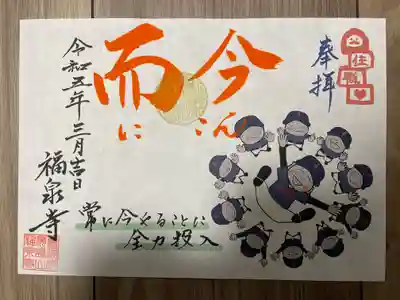 奉拝
今
こん
而
に
常に今やることに
全力投入
令和五年三月吉日
福泉寺